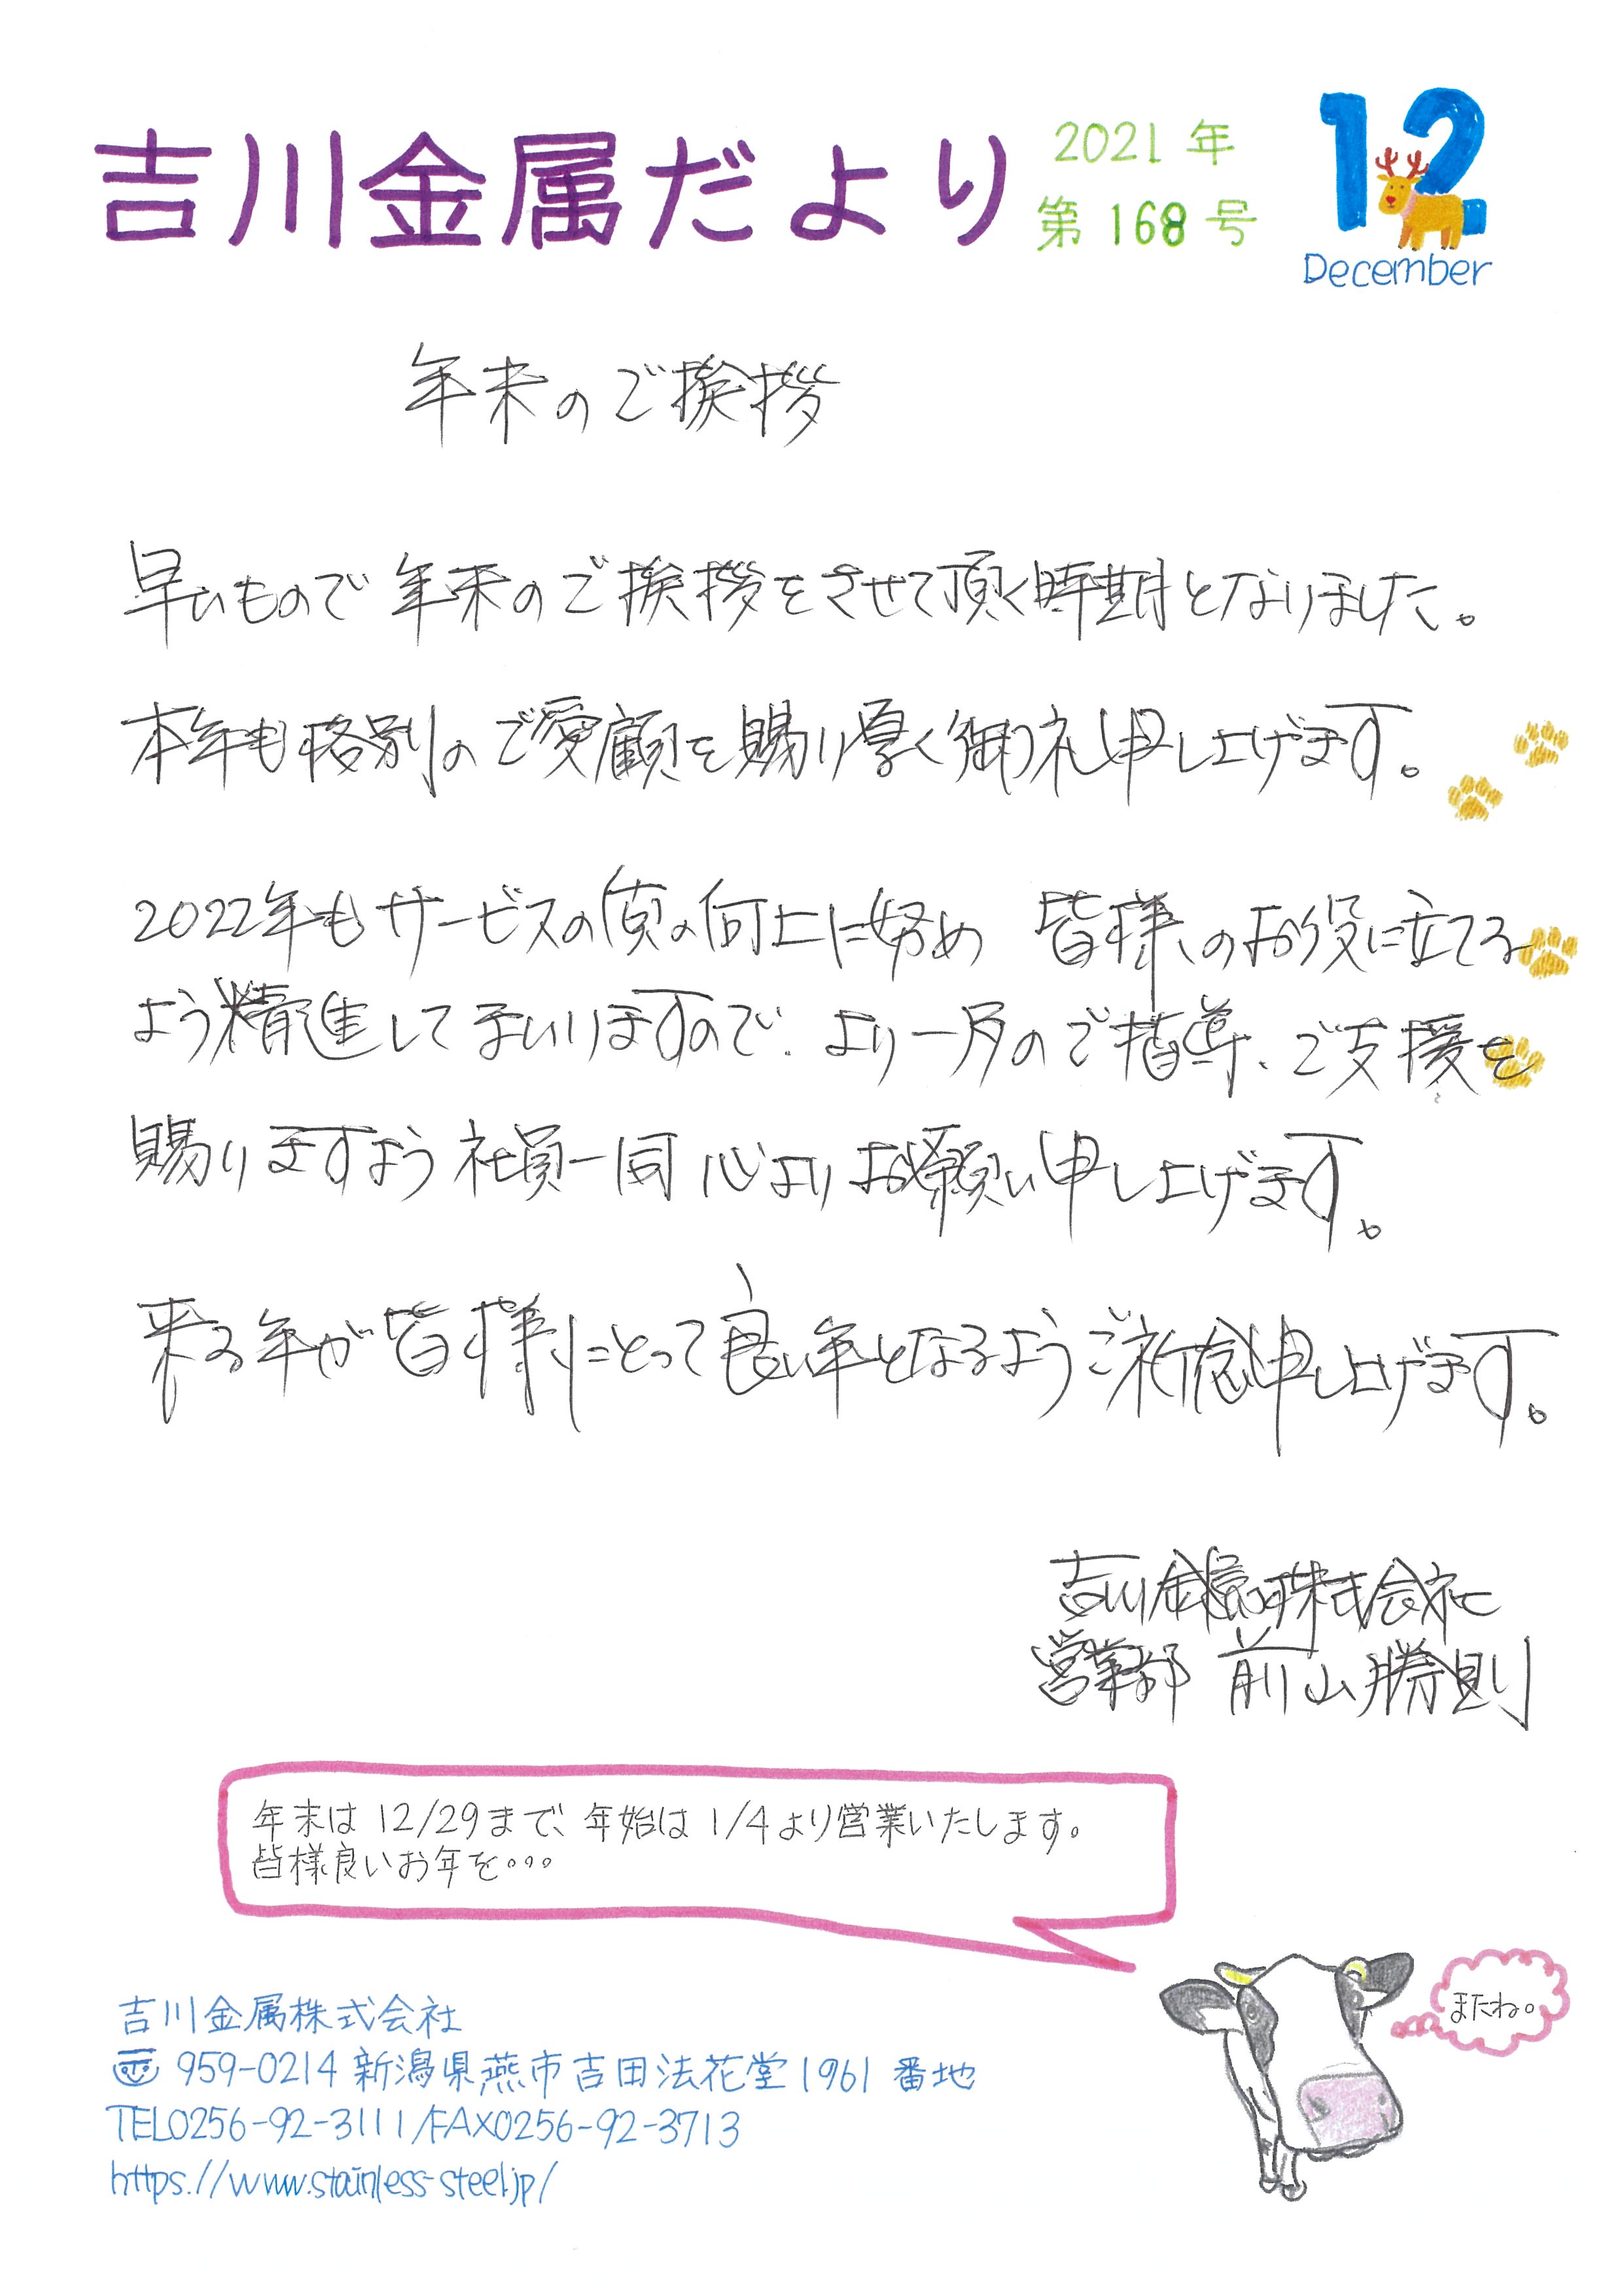 吉川金属だより
2021年
第168号
12
December
年末のご挨拶
早いもので年末のご挨拶をさせて頂く時期となりました。
本年も格別のご愛顧を賜り厚く御礼申し上げます。
2022年もサービスの質の向上に努め 皆様のお役に立てる
よう精進してまいりますので、より一層のご指導、ご支援を
賜りますよう社員一同心よりお願い申し上げます。
来る年が皆様にとって良い年となるようご祈念申し上げます。
吉川金属株式会社
営業部 前山勝則
年末は12/29まで、年始は1/4より営業いたします。
皆様良いお年を・・・
またね。
吉川金属株式会社
〠959-0214新潟県燕市吉田法花堂1961番地
TEL0256-92-3111/FAX0256-92-3713
https://www.stainless-steel.jp/